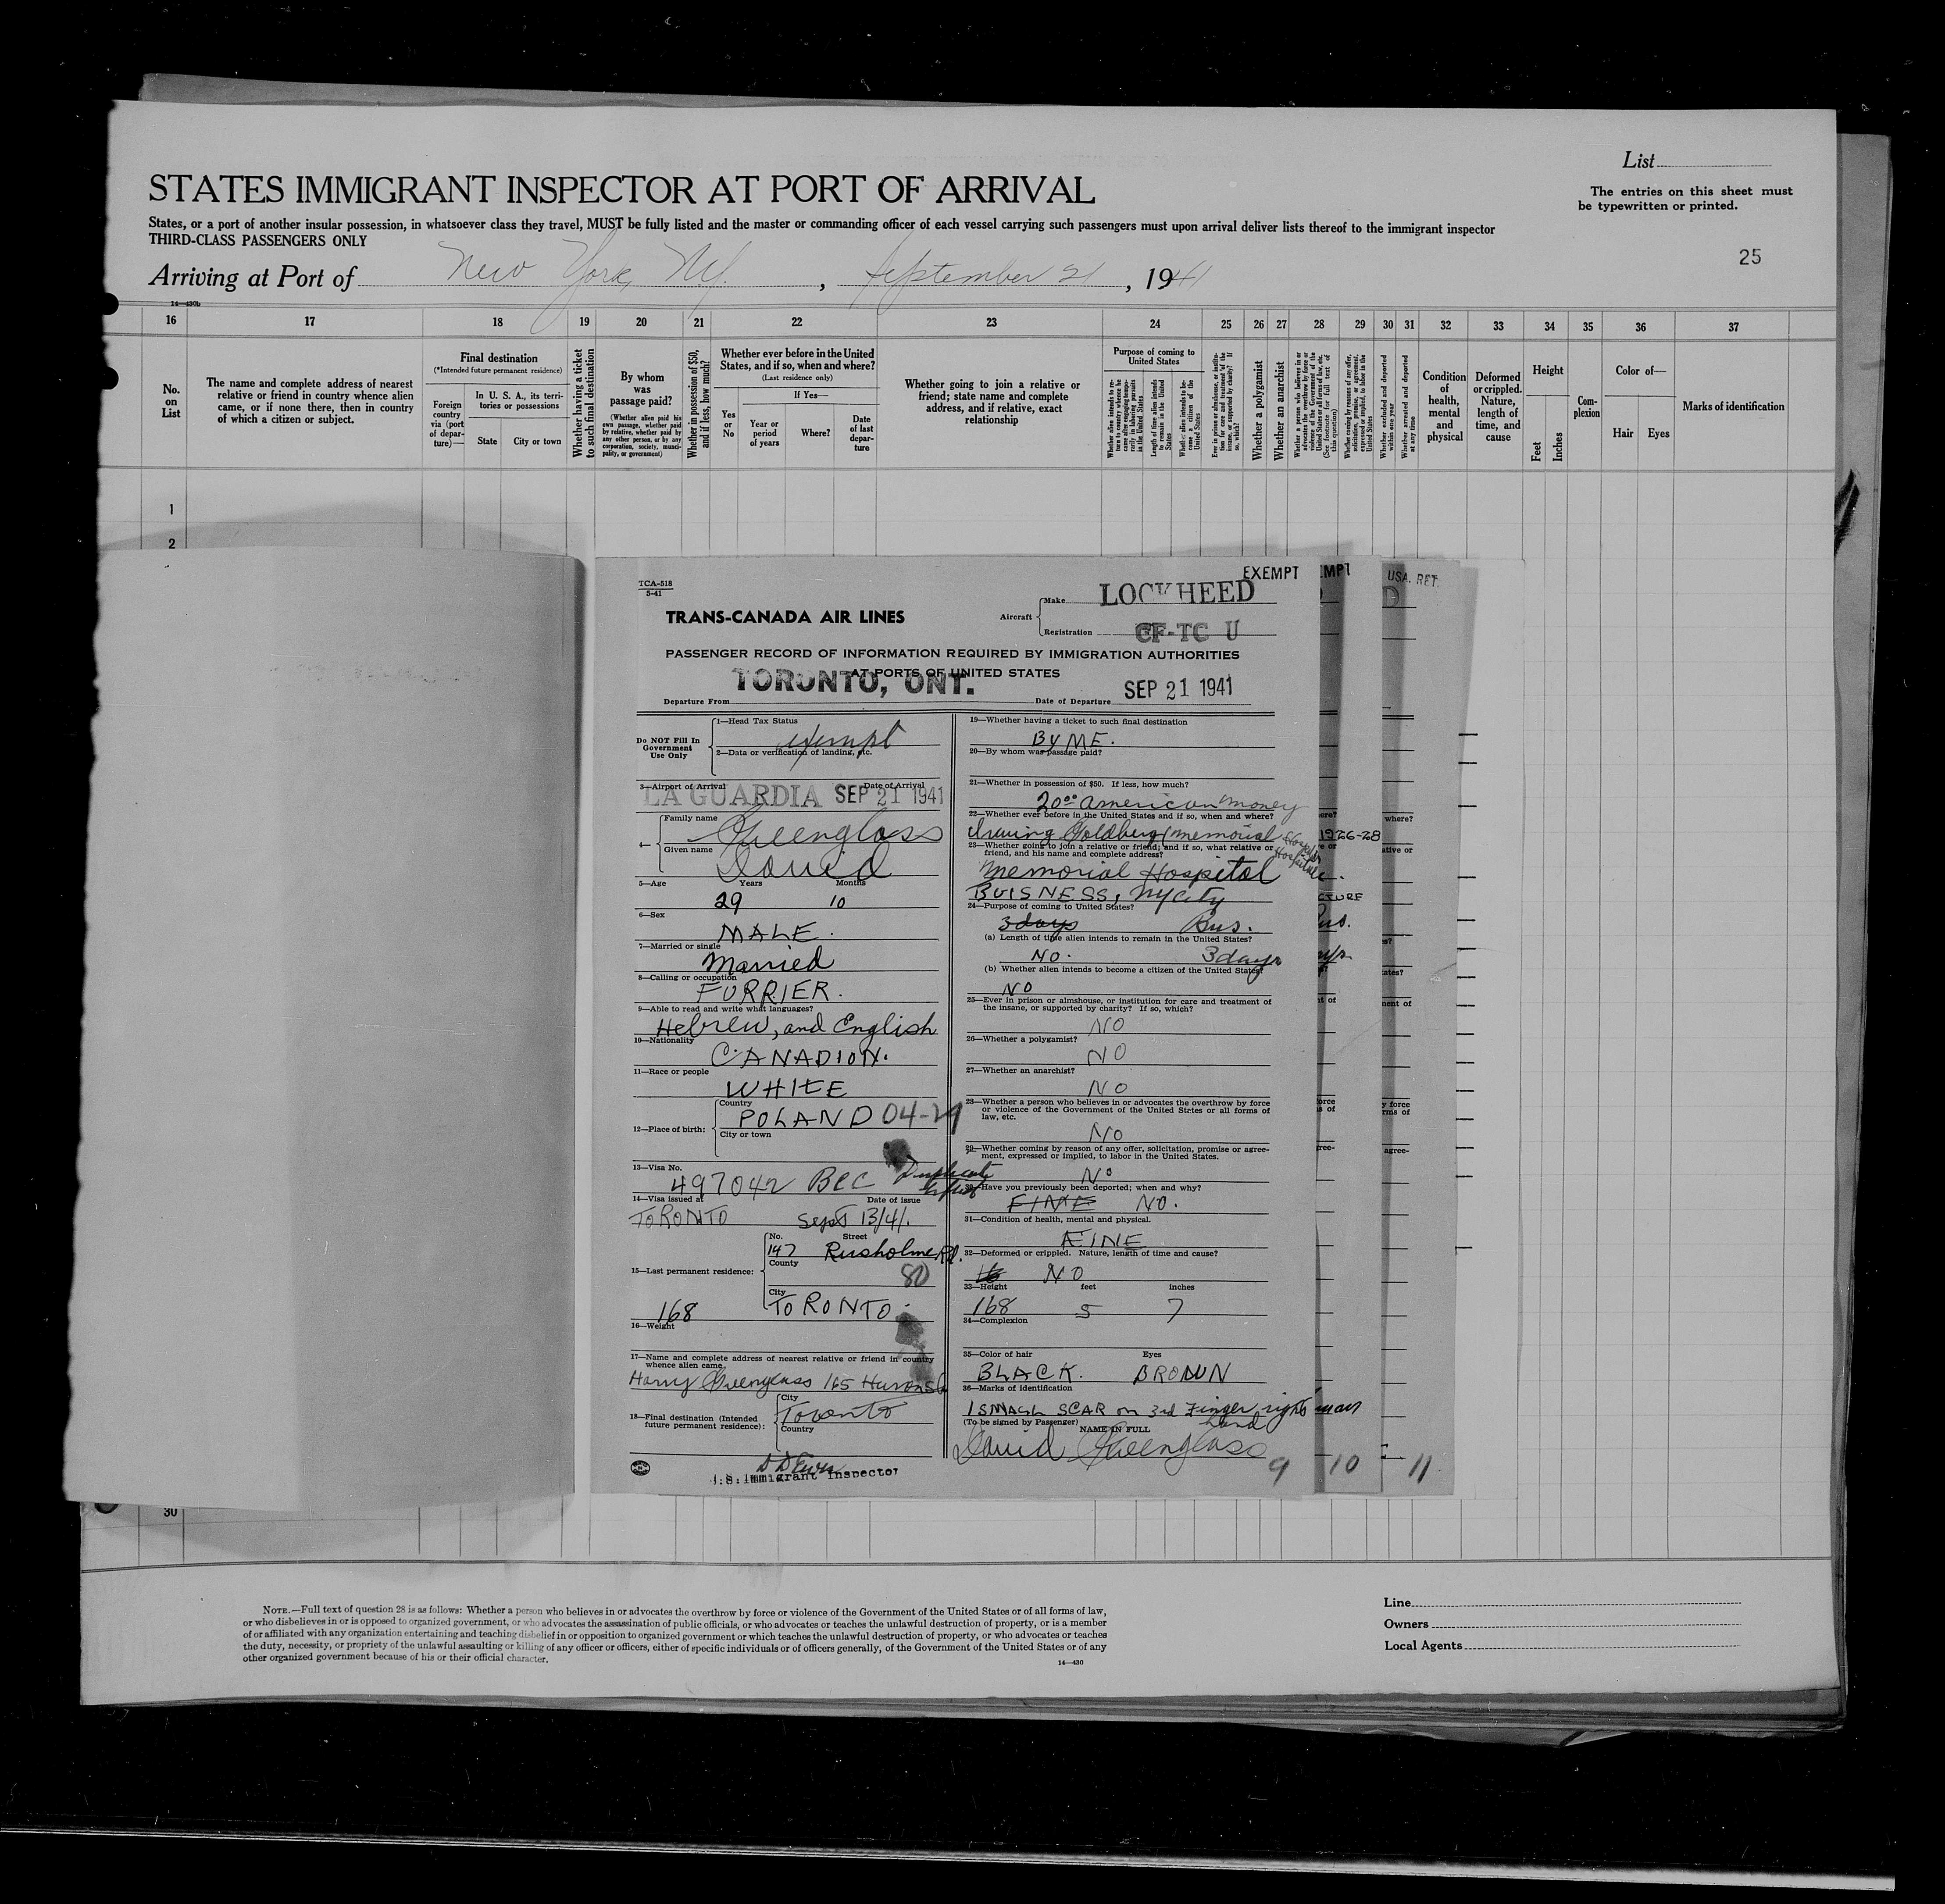 List
STATES IMMIGRANT INSPECTOR AT PORT OF ARRIVAL
The entries on this sheet must
be typewritten or printed.
States, or a port of another insular possession, in whatsoever class they travel, MUST be fully listed and the master or commanding officer of each vessel carrying such passengers must upon arrival deliver lists thereof to the immigrant inspector
THIRD-CLASS PASSENGERS ONLY
25
Arriving at Port of New York, NY. , September 21 , 1941
14—430b
16 17 18 19 20 21 22 23 24 25 26 27 28 29 30 31 32 33 34 35 36 37
No. on List
The name and complete address of nearest relative or friend in country whence alien came, or if none there, then in country of which a citizen or subject.
Final destination
(*Intended future permanent residence)
Foreign country via (port of departure)—
In U. S. A., its territories or possessions
State
City or town
Whether having a ticket to such final destination
By whom was passage paid?
(Whether alien paid his own passage, whether paid by relative, whether paid by any other person, or by any corporation, society, municipality, or government)
Whether in possession of $50, and if less, how much?
Whether ever before in the United States, and if so, when and where?
(Last residence only)
If Yes—
Yes or No
Year or period of years
Where?
Date of last departure
Whether going to join a relative or friend; state name and complete address, and if relative, exact relationship
Purpose of coming to United States
Length of time alien intends to remain in the United States
Whether alien intends to become a citizen of the United States
Whether a polygamist
Whether an anarchist
Whether excluded and deported within one year
Whether arrested and deported at any time
Condition of health, mental and physical
Deformed or crippled. Nature, length of time, and cause
Height
Feet
Inches
Complexion
Color of—
Hair
Eyes
Marks of identification
1
2
TCA-518
5-41
EXEMPT
EMPT
USA. RET.
TRANS-CANADA AIR LINES
Aircraft
Make LOCKHEED
Registration CF-TC U
PASSENGER RECORD OF INFORMATION REQUIRED BY IMMIGRATION AUTHORITIES
AT PORTS OF UNITED STATES
Departure From TORONTO, ONT.
Date of Departure SEP 21 1941
Do NOT Fill In Government Use Only
1—Head Tax Status
exempt
2—Data or verification of landing, etc.
3—Airport of Arrival Date of Arrival
LA GUARDIA SEP 21 1941
4—
Family name Greenglass
Given name David
5—Age Years Months
29 10
6—Sex
MALE.
7—Married or single
Married
8—Calling or occupation
FURRIER.
9—Able to read and write what languages?
Hebrew, and English
10—Nationality
CANADION.
11—Race or people
WHITE
12—Place of birth:
Country
POLAND 04-29
City or town
13—Visa No.
497042 BCC Duplicate
14—Visa issued at Date of issue
TORONTO Sept 13/41.
15—Last permanent residence:
No. Street
147 Rusholme Rd.
County
80
City
TORONTO.
168
16—Weight
17—Name and complete address of nearest relative or friend in country
whence alien came.
Harry Greenglass 165 Huron St
18—Final destination (Intended
future permanent residence):
City
Toronto
Country
U.S. Immigrant Inspector
19—Whether having a ticket to such final destination
BY ME.
20—By whom was passage paid?
21—Whether in possession of $50. If less, how much?
20⁰⁰ american money
22—Whether ever before in the United States and if so, when and where?
Irwing Goldberg (memorial Hospital
23—Whether going to join a relative or friend; and if so, what relative or
friend, and his name and complete address?
Memorial Hospital
BUISNESS, NY City
24—Purpose of coming to United States?
3 days Bus.
(a) Length of time alien intends to remain in the United States?
NO. 3 days
(b) Whether alien intends to become a citizen of the United States?
NO
25—Ever in prison or almshouse, or institution for care and treatment of
the insane, or supported by charity? If so, which?
NO
26—Whether a polygamist?
NO
27—Whether an anarchist?
NO
28—Whether a person who believes in or advocates the overthrow by force
or violence of the Government of the United Stetes or all forms of
law, etc.
NO
29—Whether coming by reason of any offer, solicitation, promise or agree-
ment, expressed or implied, to labor in the United States.
NO
30—Have you previously been deported; when and why?
FINE NO.
31—Condition of health, mental and physical.
FINE
32—Deformed or crippled. Nature, length of time and cause?
NO
33—Height feet inches
168 5 7
34—Complexion
35—Color of hair Eyes
BLACK. BROWN
36—Marks of identification
1 SMALL SCAR on 3rd Finger right
hand
(To be signed by Passenger) NAME IN FULL
David Greenglass
9 10 11
1926-28
30
NOTE.—Full text of question 28 is as follows: Whether a person who believes in or advocates the overthrow by force or violence of the Government of the United States or of all forms of law,
or who disbelieves in or is opposed to organized government, or who advocates the assassination of public officials, or who advocates or teaches the unlawful destruction of property, or is a member
of or affiliated with any organization entertaining and teaching disbelief in or opposition to organized government or which teaches the unlawful destruction of property, or who advocates or teaches
the duty, necessity, or propriety of the unlawful assaulting or killing of any officer or officers, either of specific individuals or of officers generally, of the Government of the United States or of any
other organized government because of his or their official character.
14—430
Line
Owners
Local Agents